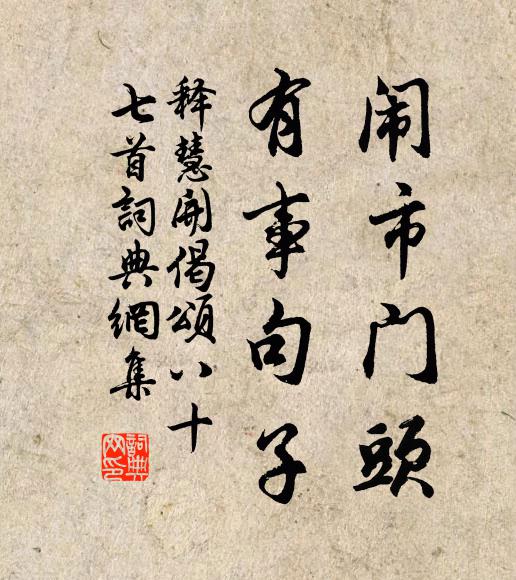 闹市门头
有事句子
释慧開偈頌八十
七首詞典網集
詞典
网印